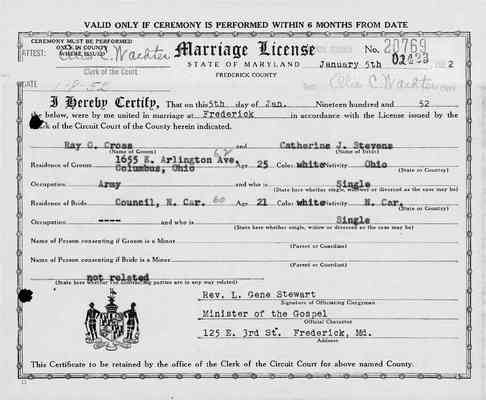 VALID ONLY IF CEREMONY IS PERFORMED WITHIN 6 MONTHS FROM DATE
CEREMONY MUST BE PERFORMED
ONLY IN COUNTY
WHERE ISSUED
ATTEST: Ellis C. Wachter
Clerk of the Court
DATE 1-8-52
Marriage License
STATE OF MARYLAND
FREDERICK COUNTY
No. 20769
January 5th 2
Ellis C. Wachter
I Hereby Certify, That on this 5th day of Jan. Nineteen hundred and 52
below, were by me united in marriage at Frederick in accordance with the License issued by the
Clerk of the Circuit Court of the County herein indicated.
Ray G. Cross and Catherine J. Stevens
(Name of Groom) (Name of Bride)
Residence of Groom 1655 E. Arlington Ave. Columbus, Ohio Age 25 Color white Nativity Ohio
(State or County)
Occupation Army and who is Single
(State here whether single, widower or divorced as the case may be)
Residence of Bride Council, N. Car. 60 Age 21 Color white Nativity N. Car.
(State or County)
Occupation ---- and who is Single
(State here whether single, widow or divorced as the case may be)
Name of Person consenting if Groom is a Minor
(Parent or Guardian)
Name of Person consenting if Bride is a Minor
(Parent or Guardian)
not related
(State here whether the contracting parties are in any way related)
Rev. L. Gene Stewart
Signature of Officiating Clergyman
Minister of the Gospel
Official Character
125 E. 3rd St. Frederick, Md.
Address
This Certificate to be retained by the office of the Clerk of the Circuit Court for above named County.